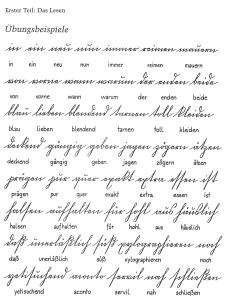 Erster Teil: Das Lesen
Übungsbeispiele
in ein neu nun immer reimen mauern
in ein neu nun immer reimen mauern
von vorne wann warum der enden beide
von vorne wann warum der enden beide
blau lieben blendend tarnen toll kleiden
blau lieben blendend tarnen toll kleiden
deckend gängig geben jagen zögern ätzen
deckend gängig geben jagen zögern ätzen
prägen pur quer exakt extra essen ist
prägen pur quer exakt extra essen ist
halsen aufhalten für hohl aus häuslich
halsen aufhalten für hohl aus häuslich
daß unerläßlich süß xylographieren noch
daß unerläßlich süß xylographieren noch
aconto servil nah schließen
aconto servil nah schließen